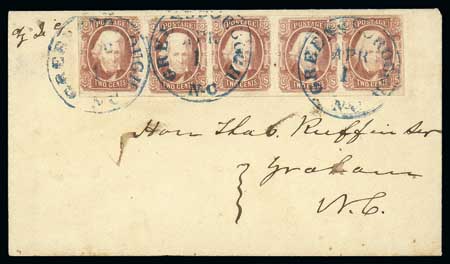 POSTAGE POSTAGE POSTAGE POSTAGE POSTAGE
TWO CENTS TWO CENTS TWO CENTS TWO CENTS TWO CENTS
GREENSBOROUGH N.C
GREENSBOROUGH APR 1 N.C
GREENSBOROUGH APR 1 N.C
Hon Thos. Ruffin Sr
Graham
N.C.